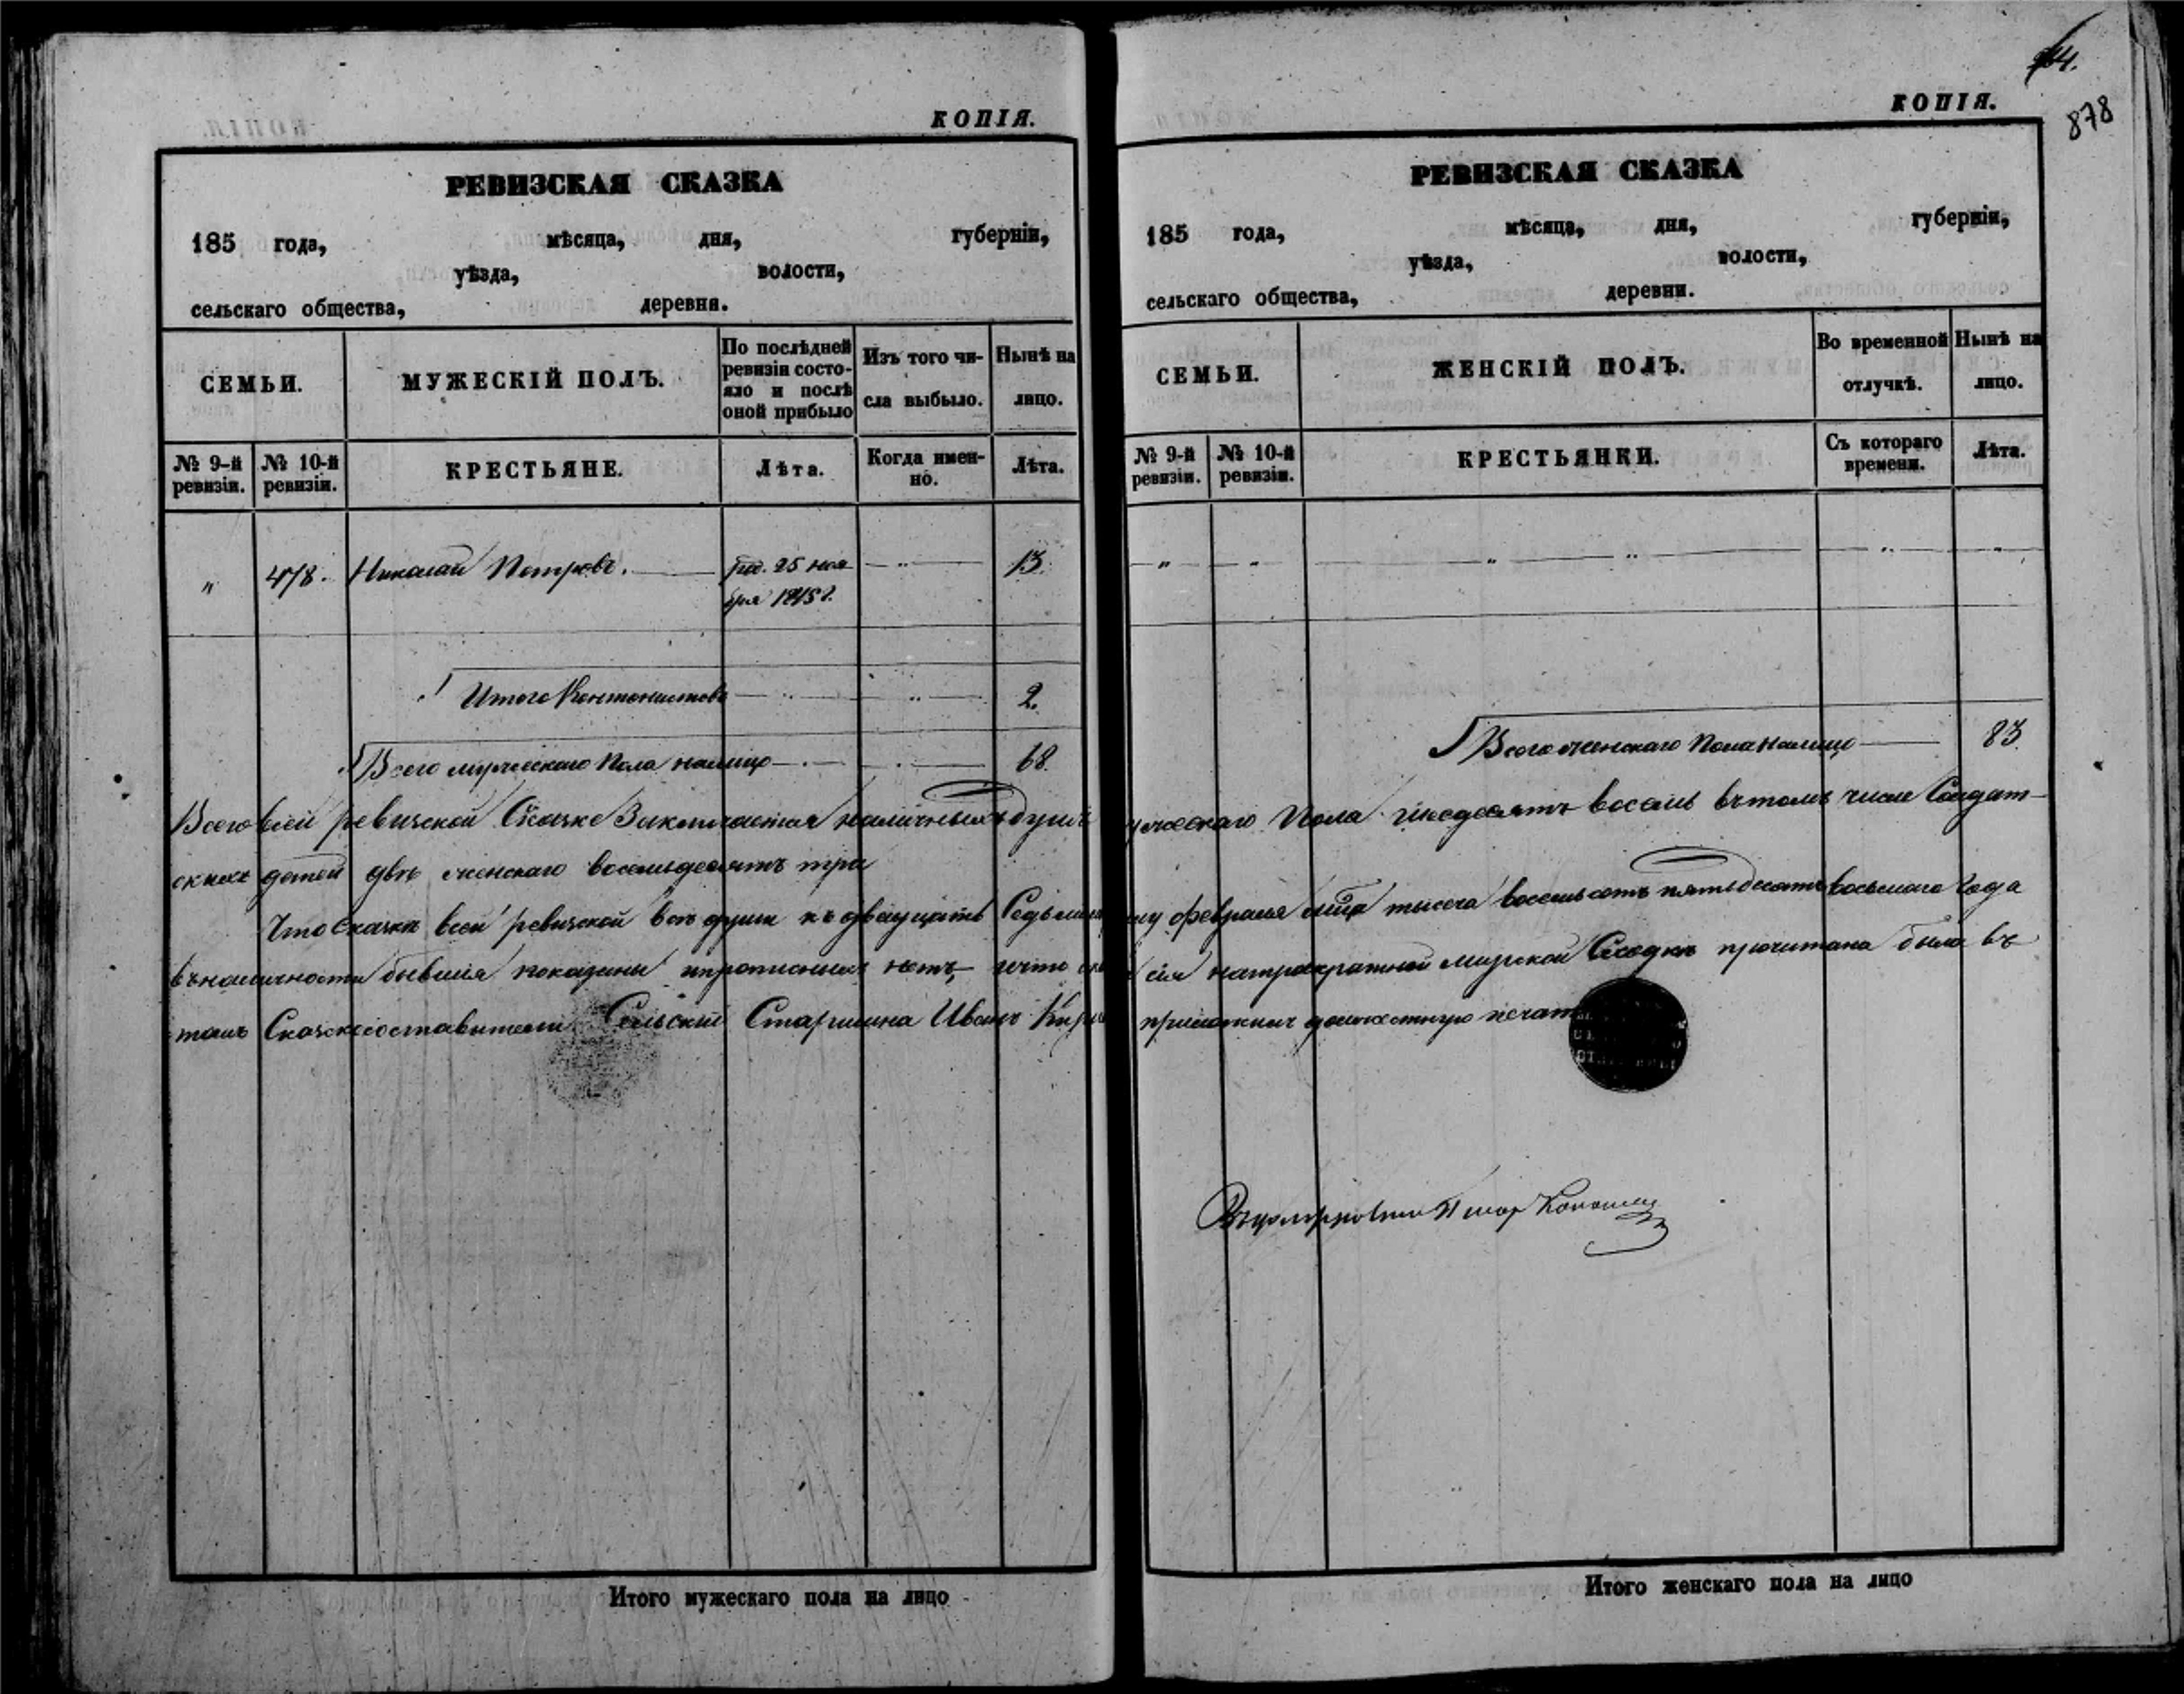 КОПІЯ.
РЕВИЗСКАЯ СКАЗКА
185 года, мѣсяца, дня, губерніи,
уѣзда, волости,
сельскаго общества, деревни.
СЕМЬИ. МУЖЕСКІЙ ПОЛЪ. По послѣдней ревизіи состояло и послѣ оной прибыло Изъ того числа выбыло. Нынѣ на лицо.
№ 9-й ревизіи. № 10-й ревизіи. КРЕСТЬЯНЕ. Лѣта. Когда именно. Лѣта.
" 478. Николай Петровъ. 25 ноя- 13.
бря 1845 г.
Итого Кантонистовъ 2.
Всего мужескаго Пола налицо 68.
Всего всей ревизской Сказке Заключается наличныхъ душъ
скихъ детей двѣ женскаго восемьдесятъ три
Что въ всей ревизской всѣ души къ двадцать
въ наличности бывшія показаны и прописныхъ нетъ, что
Сельский Старшина Иванъ
Итого мужескаго пола на лицо
44.
878
КОПІЯ.
РЕВИЗСКАЯ СКАЗКА
185 года, мѣсяца, дня, губерніи,
уѣзда, волости,
сельскаго общества, деревни.
СЕМЬИ. ЖЕНСКІЙ ПОЛЪ. Во временной отлучкѣ. Нынѣ на лицо.
№ 9-й ревизіи. № 10-й ревизіи. КРЕСТЬЯНКИ. Съ котораго времени. Лѣта.
" " " " " "
Всего женскаго Пола налицо 83.
Пола шесдесятъ восемь въ томъ числе Солдат-
февраля тысеча восемьсотъ пятьдесятъ восьмого года
сія мирской Сходкѣ прочитана была въ
приложилъ должностную печать
Итого женскаго пола на лицо